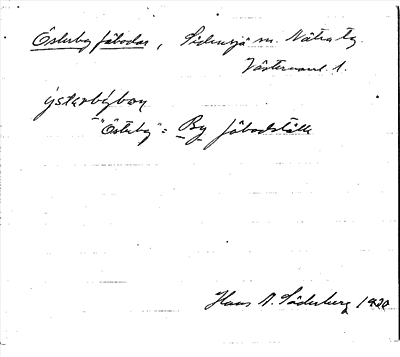 Österby fäbodar, Sidensjö sn. Nätra tg.
Västernorrl. l.
ýstərbýbɷn
"Österby" = By fäbodställe
Hans A. Söderberg 1920